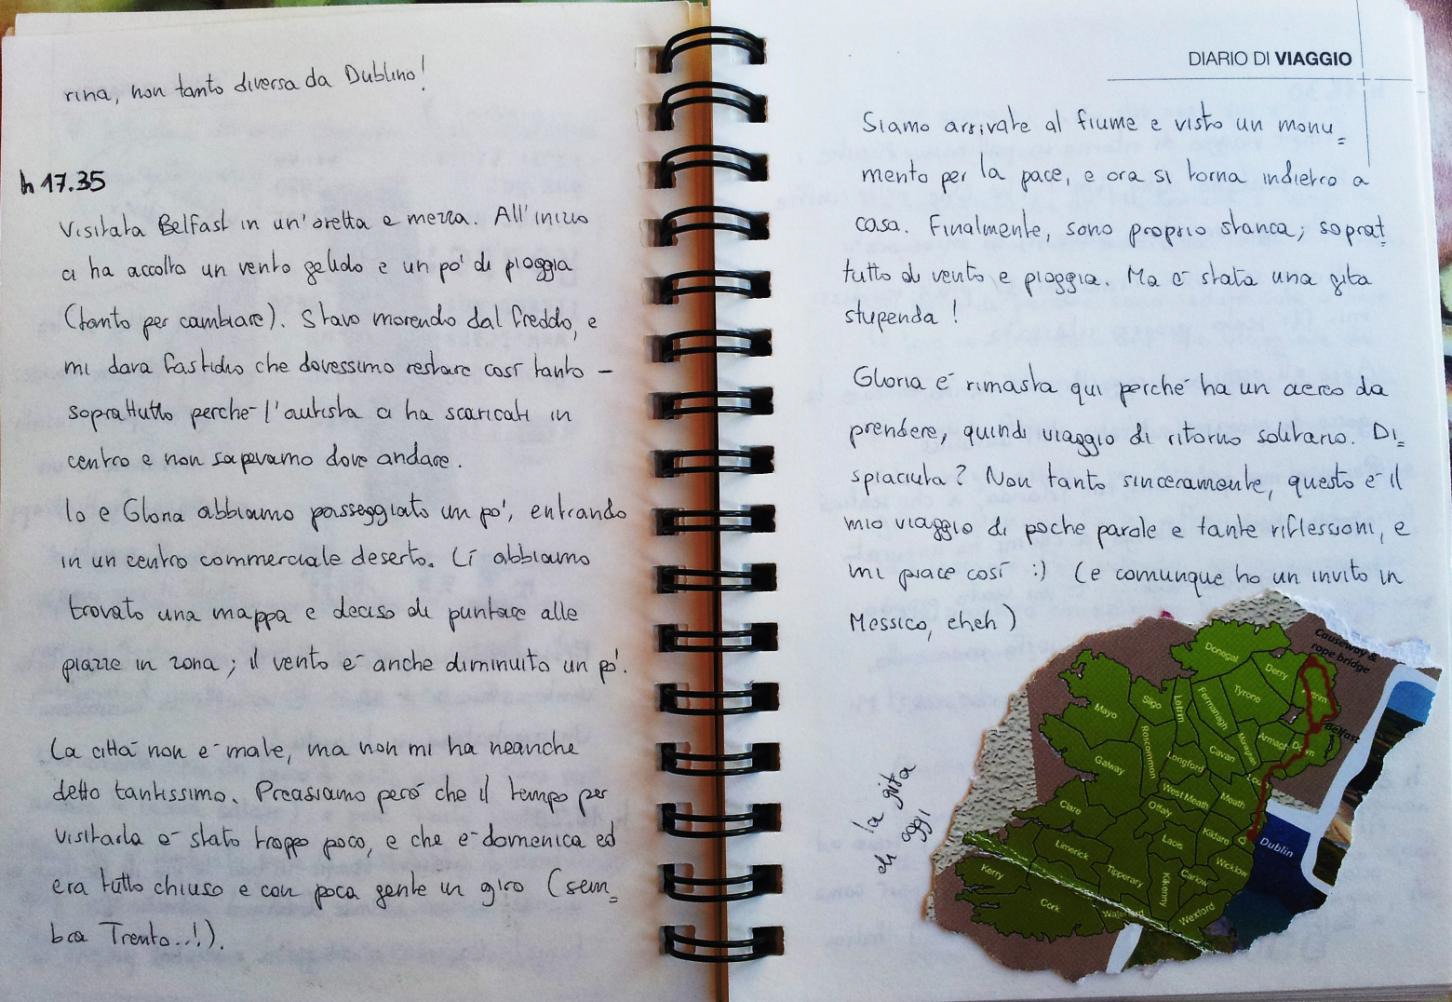 rina, non tanto diversa da Dublino!
h 17.35
Visitata Belfast in un'oretta e mezza. All'inizio
ci ha accolto un vento gelido e un pò di pioggia
(tanto per cambiare). Stavo morendo dal freddo, e
mi dava fastidio che dovessimo restare così tanto –
soprattutto perché l'autista ci ha scaricati in
centro e non sapevamo dove andare.
Io e Gloria abbiamo passeggiato un pò, entrando
in un centro commerciale deserto. Lì abbiamo
trovato una mappa e deciso di puntare alle
piazze in zona; il vento è anche diminuito un pò.
La città non è male, ma non mi ha neanche
detto tantissimo. Precisiamo però che il tempo per
visitarla è stato troppo poco, e che è domenica ed
era tutto chiuso e con poca gente in giro (sem=
bra Trento..!).
DIARIO DI VIAGGIO
Siamo arrivate al fiume e visto un monu=
mento per la pace, e ora si torna indietro a
casa. Finalmente, sono proprio stanca; soprat=
tutto di vento e pioggia. Ma è stata una gita
stupenda!
Gloria è rimasta qui perché ha un aereo da
prendere, quindi viaggio di ritorno solitario. Di=
spiaciuta? Non tanto sinceramente, questo è il
mio viaggio di poche parole e tante riflessioni, e
mi piace così :) (e comunque ho un invito in
Messico, eheh)
la gita
di oggi
Causeway &
rope bridge
Donegal
Derry
Antrim
Tyrone
Belfast
Fermanagh
Sligo
Leitrim
Mayo
Armagh
Down
Monaghan
Cavan
Roscommon
Longford
Galway
West Meath
Meath
Offaly
Clare
Kildare
Dublin
Laois
Wicklow
Limerick
Carlow
Tipperary
Kilkenny
Kerry
Wexford
Waterford
Cork